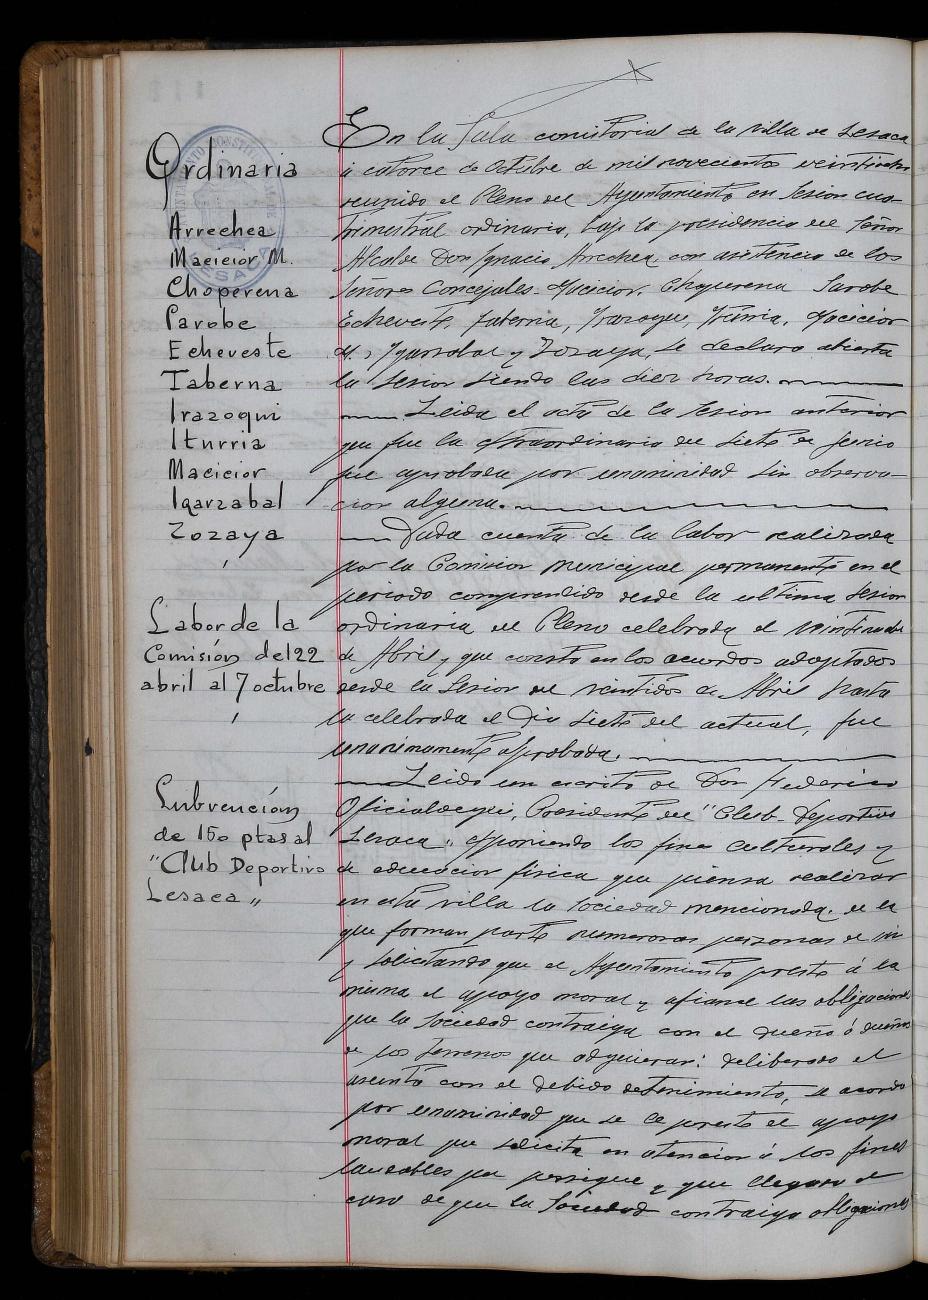 Ordinaria
Arrechea
Macicior M.
Choperena
Sarobe
Echeveste
Taberna
Irazoqui
Iturria
Macicior
Igarzabal
Zozaya
Labor de la
Comisión del 22
abril al 7 octubre
Subvención
de 150 ptas al
"Club Deportivo
Lesaca"
En la Sala consistorial de la villa de Lesaca
á catorce de Octubre de mil novecientos
reunido el Pleno del Ayuntamiento en sesion cua-
trimestral ordinaria, bajo la presidencia del Señor
Alcalde Don Ignacio Arrechea, con asistencia de los
Señores Concejales Macicior, Choperena Sarobe
Echeveste, Taberna, Irazoqui, Iturria, Macicior
Igarzabal y Zozaya, se declara abierta
la sesion siendo las diez horas.
Leida el acta de la sesion anterior
que fue la extraordinaria del siete de Junio
fue aprobada por unanimidad sin observa-
cion alguna.
Dada cuenta de la labor realizada
por la Comision municipal permanente en el
periodo comprendido desde la ultima sesion
ordinaria del Pleno celebrada el
de Abril y que consta en los acuerdos adoptados
desde la sesion del veintidos de Abril hasta
la celebrada el dia siete del actual, fue
unanimamente aprobada.
Leido un escrito de Don Federico
Oficialdegui, Presidente del "Club Deportivo
Lesaca" exponiendo los fines culturales y
de educacion fisica que piensa realizar
en esta villa la Sociedad mencionada, de la
que forman parte numerosas personas de
y solicitando que el Ayuntamiento preste á la
misma el apoyo moral y afiance las obligaciones
que la Sociedad contraiga con el dueño ó dueños
de los terrenos que adquieran: deliberado el
asunto con el debido detenimiento, se acordó
por unanimidad que se le preste el apoyo
moral que solicita en atencion á los fines
laudables que persigue y que llegado el
caso de que la Sociedad contraiga obligaciones